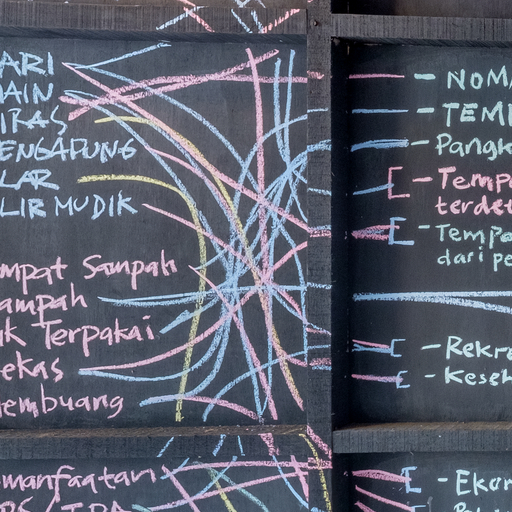 ARI
AIN
IRAS
ENGAPUNG
LAR
LIR MUDIK
mpat Sampah
ampah
ak Terpakai
ekas
embuang
manfaatan
- NOMA
- TEMP
- Pangk
[ - Tempa
terdet
[ - Tempa
dari pe
[ - Rekre
[ - Keseh
[ - Ekon